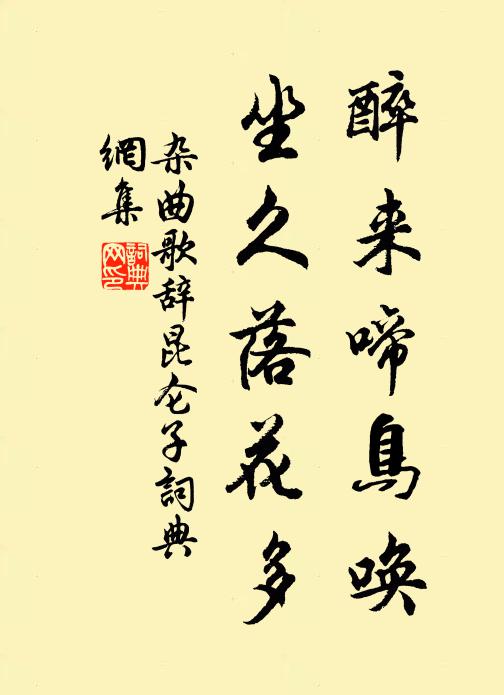 醉来啼鳥唤
坐久落花多
杂曲歌辞昆仑子詞典
網集
詞典網印